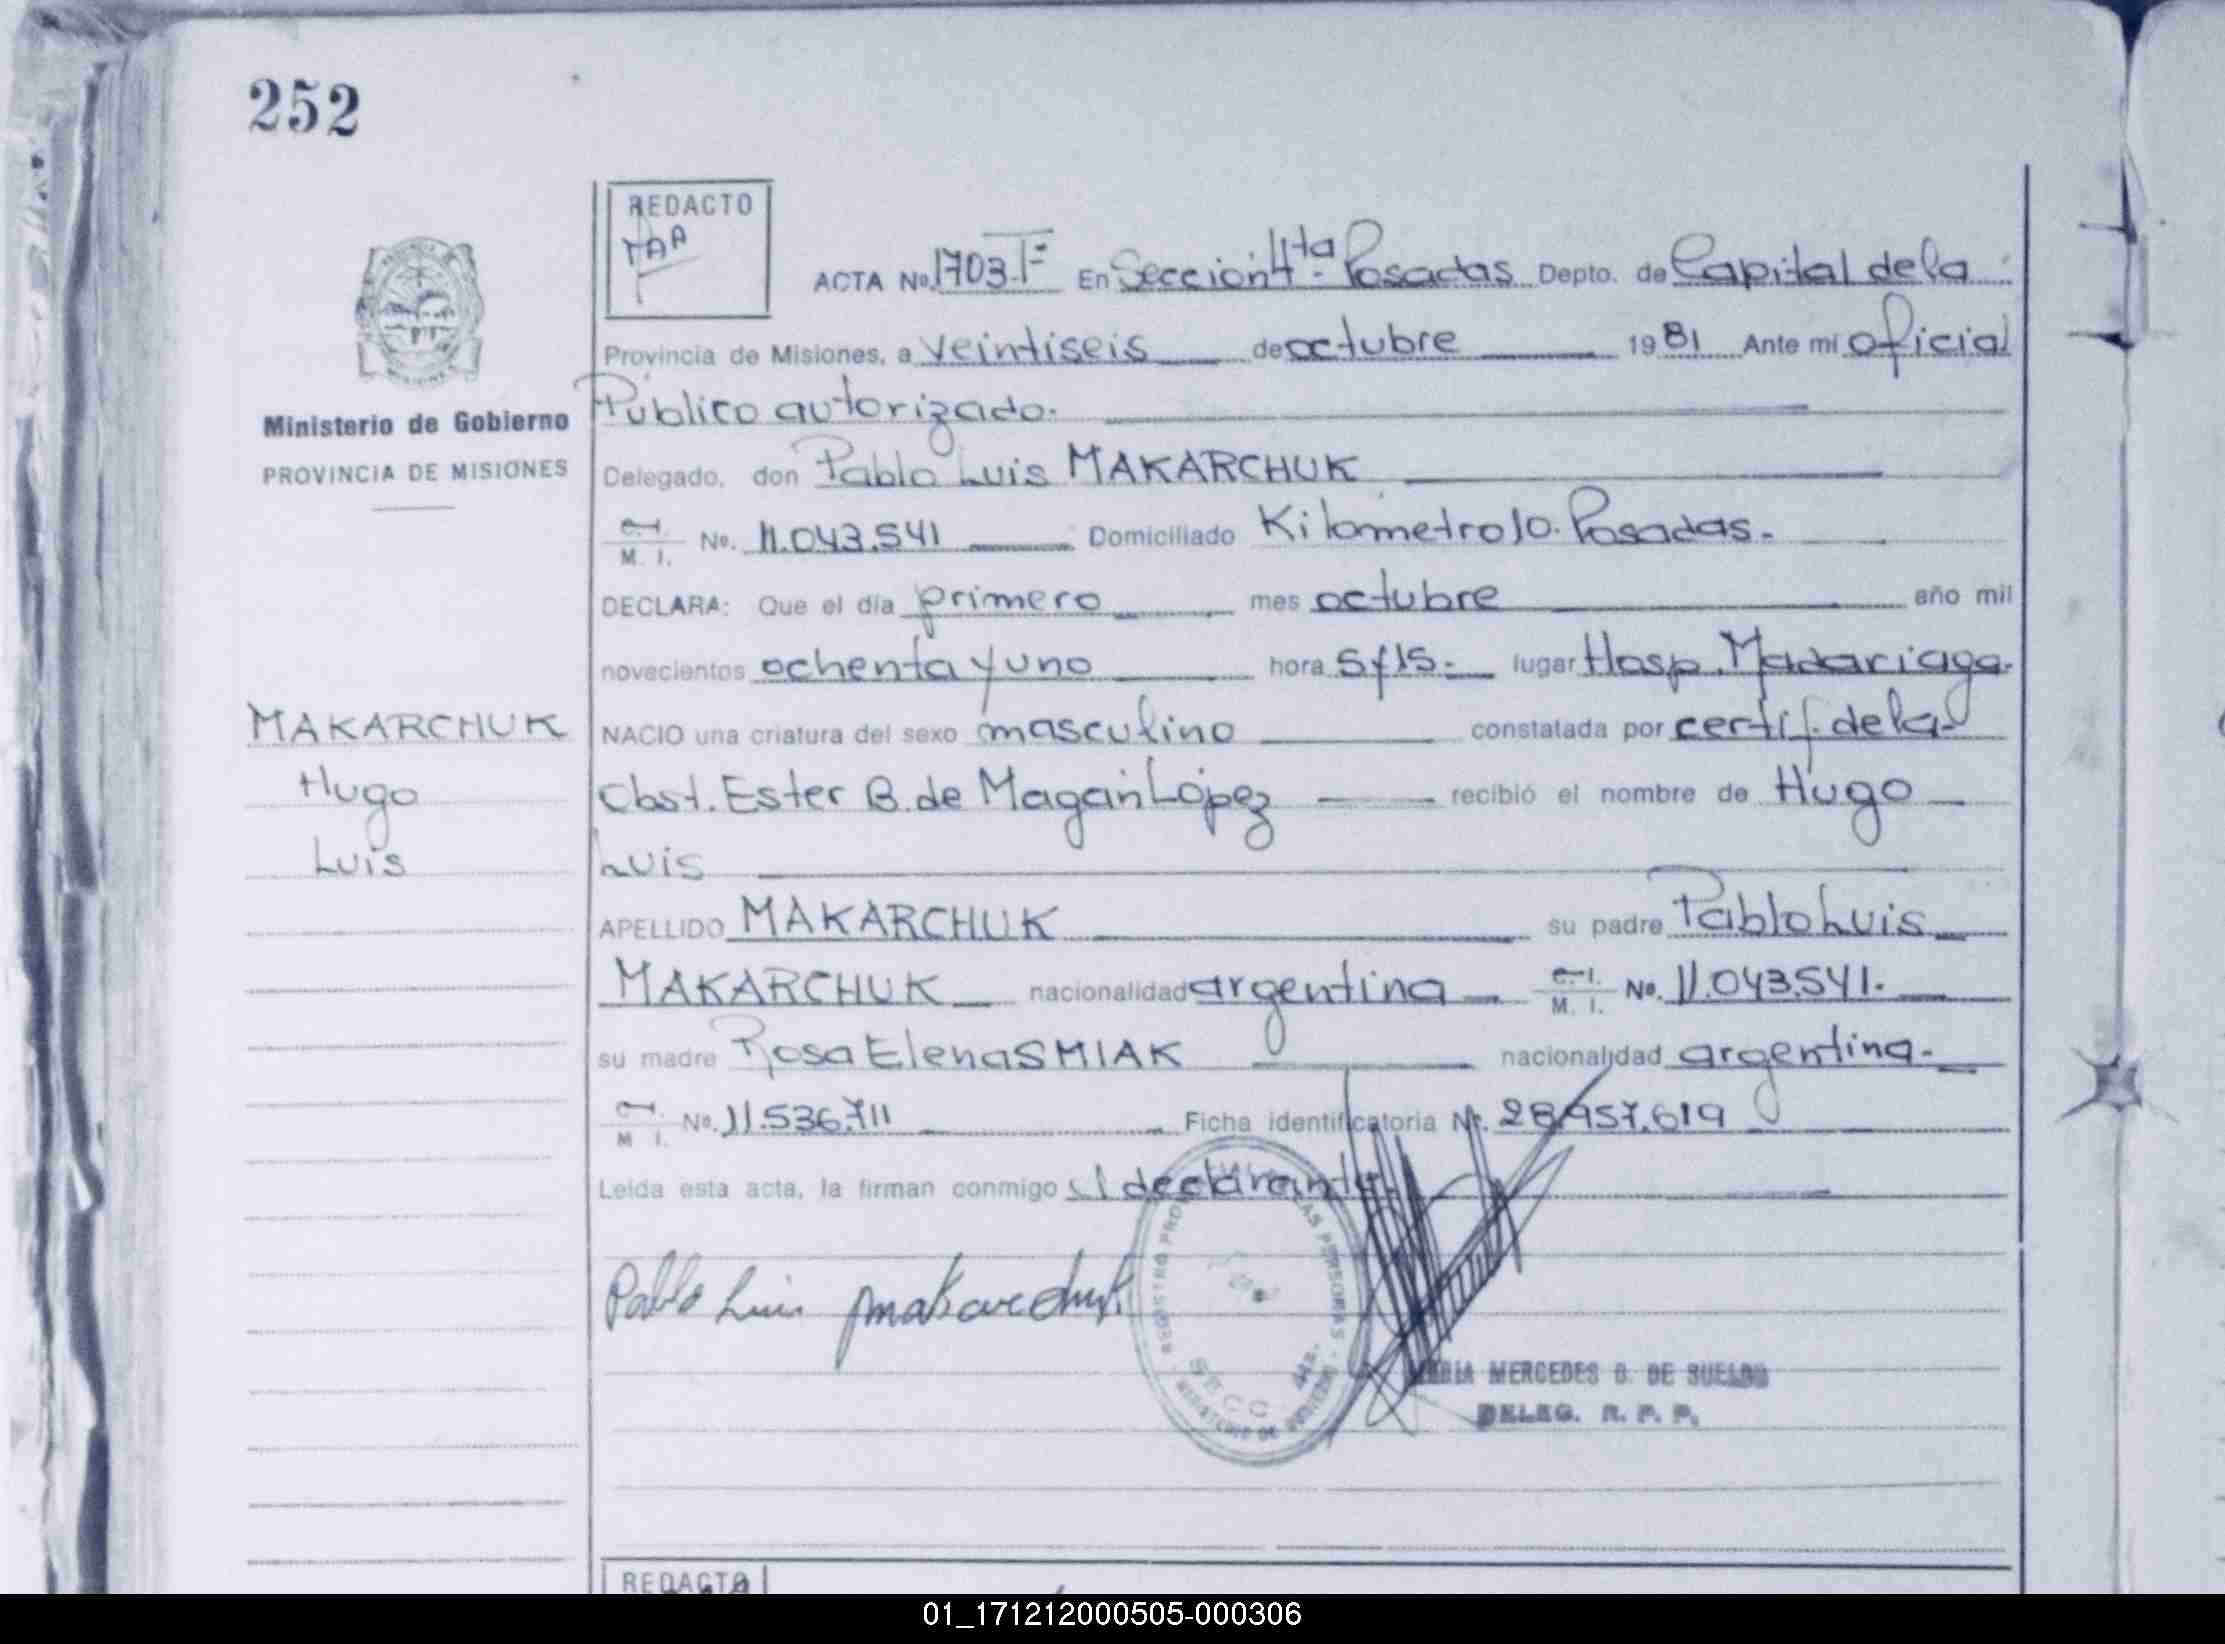 252
REDACTO
ACTA No. 1703. Tº En Sección 4ta. Posadas Depto. de Capital de la
Provincia de Misiones, a veintiseis de octubre 1981 Ante mi oficial
Ministerio de Gobierno
Público autorizado.
PROVINCIA DE MISIONES
Delegado, don Pablo Luis MAKARCHUK
C. I. M. I. No. 11.043.541 Domiciliado Kilómetro 10. Posadas.
DECLARA: Que el día primero mes octubre año mil
novecientos ochenta y uno hora 5 y 15. lugar Hosp. Madariaga.
MAKARCHUK
Hugo
Luis
NACIO una criatura del sexo masculino constatada por certif. de la
Obst. Ester B. de Magán López recibió el nombre de Hugo
Luis
APELLIDO MAKARCHUK su padre Pablo Luis
MAKARCHUK nacionalidad argentina C. I. M. I. No. 11.043.541.
su madre Rosa Elena SMIAK nacionalidad argentina.
C. I. M. I. No. 11.536.711 Ficha identificatoria Nr. 28.957.619
Leída esta acta, la firman conmigo el declarante
Pablo Luis Makarchuk
SECC 4ta.
MINISTERIO DE GOBIERNO
MARIA MERCEDES B. DE SUELDO
DELEG. R. P. P.
REDACTO
01_171212000505-000306